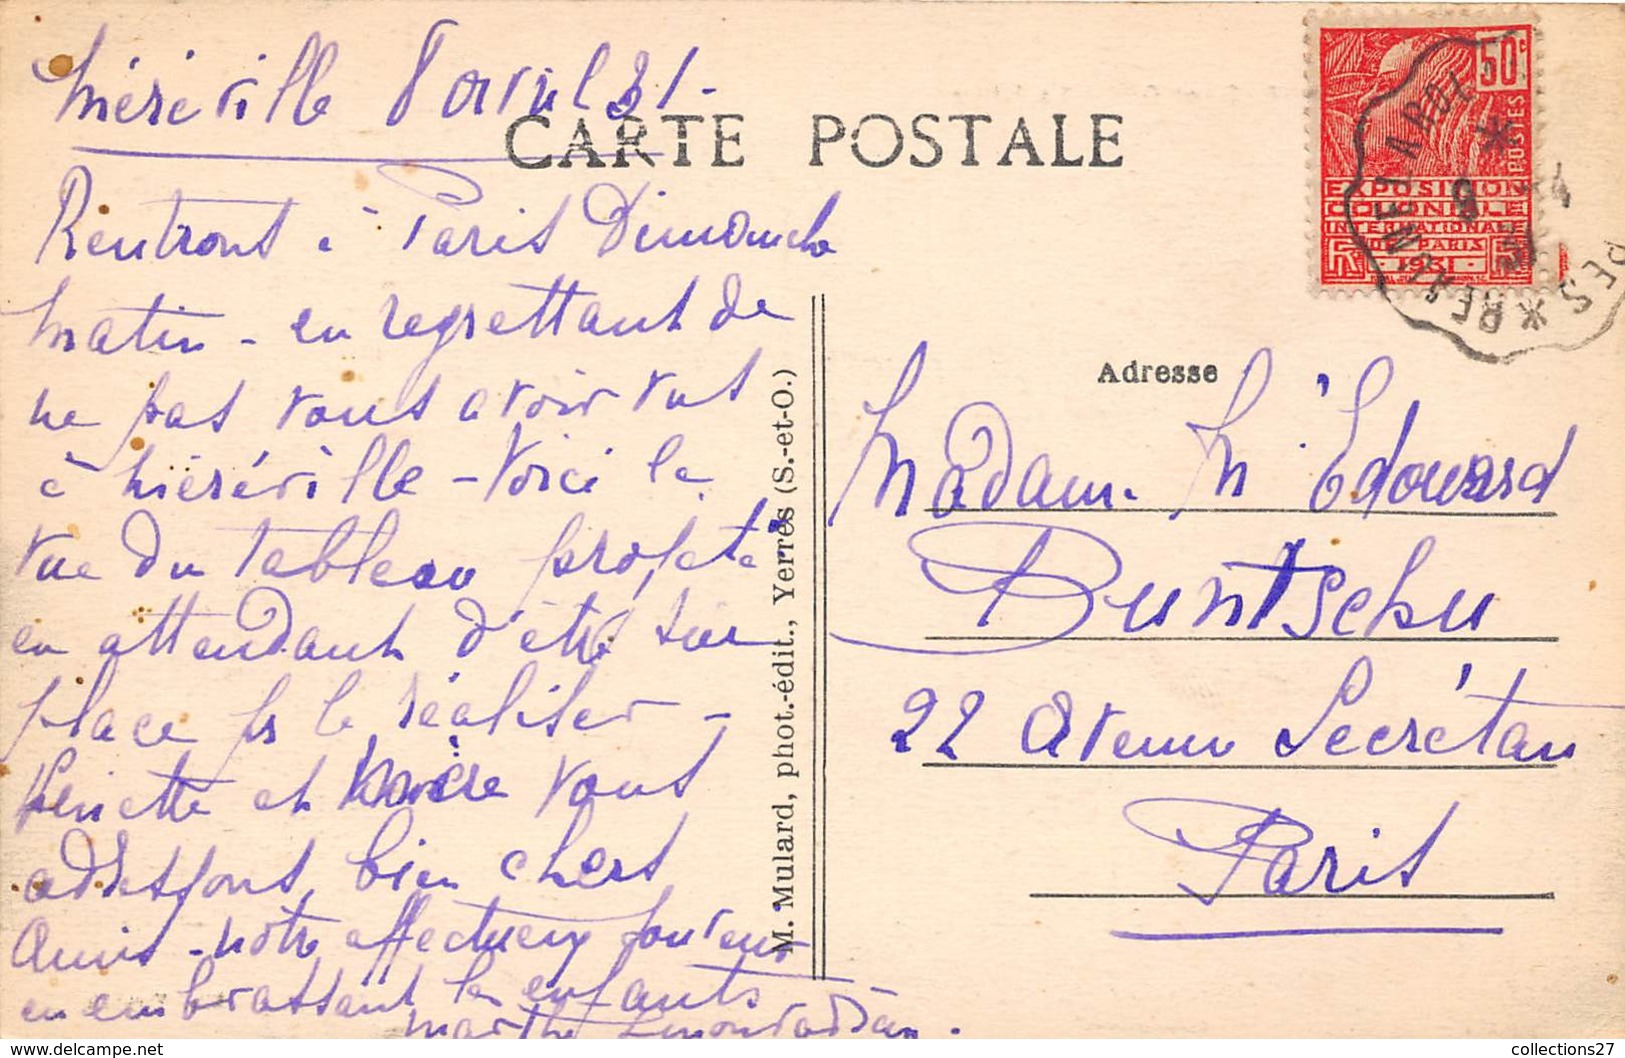 Méréville 8 avril 31-
CARTE POSTALE
Rentrons à Paris Dimanche
matin - en regrettant de
ne pas vous avoir vus
à Méréville - Voici la
vue du tableau projeté
en attendant d'être sur
place pr le réaliser -
et vous
adressons, bien chers
Amis - notre affectueux souvenir
en embrassant les enfants
Marthe
M. Mulard, phot.-édit., Yerres (S.-et-O.)
50c
POSTES
EXPOSITION
COLONIALE
INTERNATIONALE
DE PARIS
1931
RF
9 -4
31
Adresse
Madame M Edouard
Duntschu
22 Avenue Secrétan
Paris
collections27